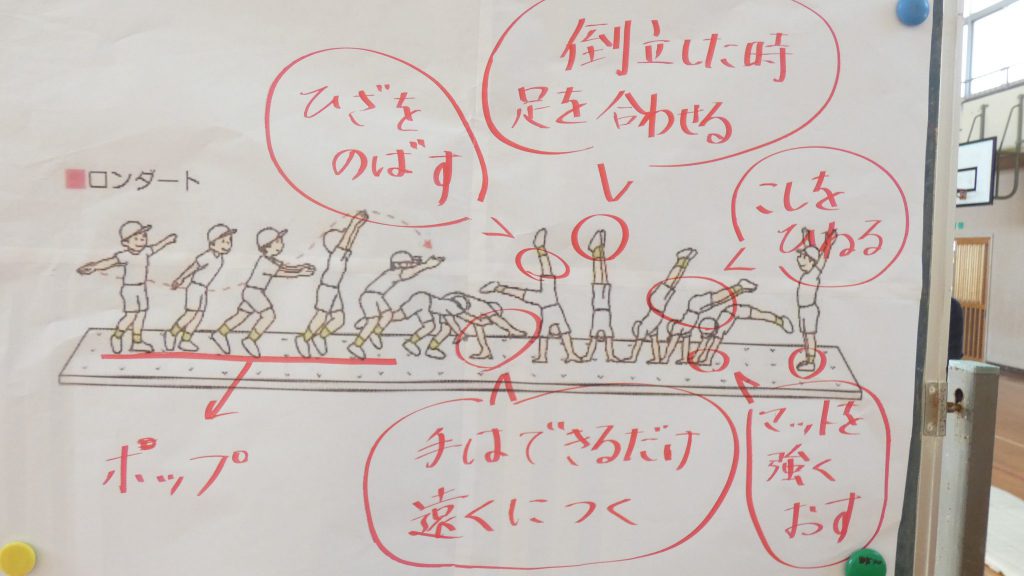 倒立した時
足を合わせる
ひざを
のばす
ロンダート
こしを
ひねる
ポップ
手はできるだけ
遠くにつく
マットを
強く
おす